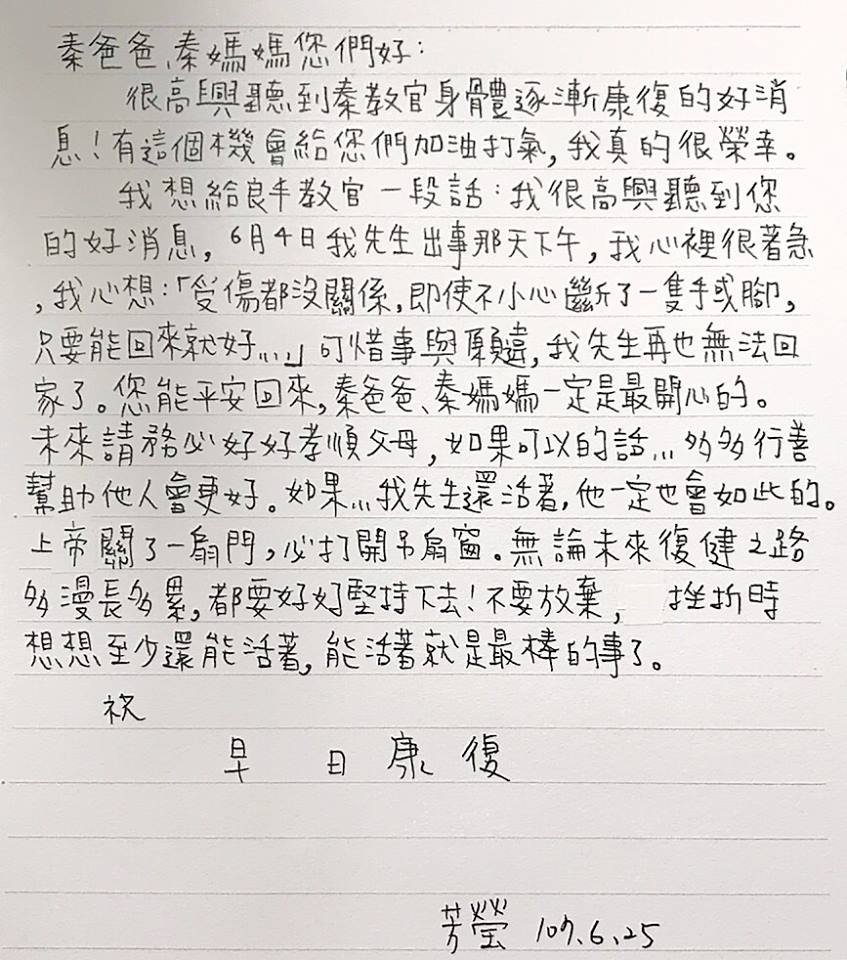 秦爸爸、秦媽媽您們好：
很高興聽到秦教官身體逐漸康復的好消
息！有這個機會給您們加油打氣，我真的很榮幸。
我想給良丰教官一段話：我很高興聽到您
的好消息，6月4日我先生出事那天下午，我心裡很著急
，我心想：「受傷都沒關係，即使不小心斷了一隻手或腳，
只要能回來就好....」可惜事與願違，我先生再也無法回
家了。您能平安回來，秦爸爸、秦媽媽一定是最開心的。
未來請務必好好孝順父母，如果可以的話...多多行善
幫助他人會更好。如果...我先生還活著，他一定也會如此的。
上帝關了一扇門，必打開另扇窗。無論未來復健之路
多漫長多累，都要好好堅持下去！不要放棄，挫折時
想想至少還能活著，能活著就是最棒的事了。
祝
早日康復
芳瑩 107.6.25